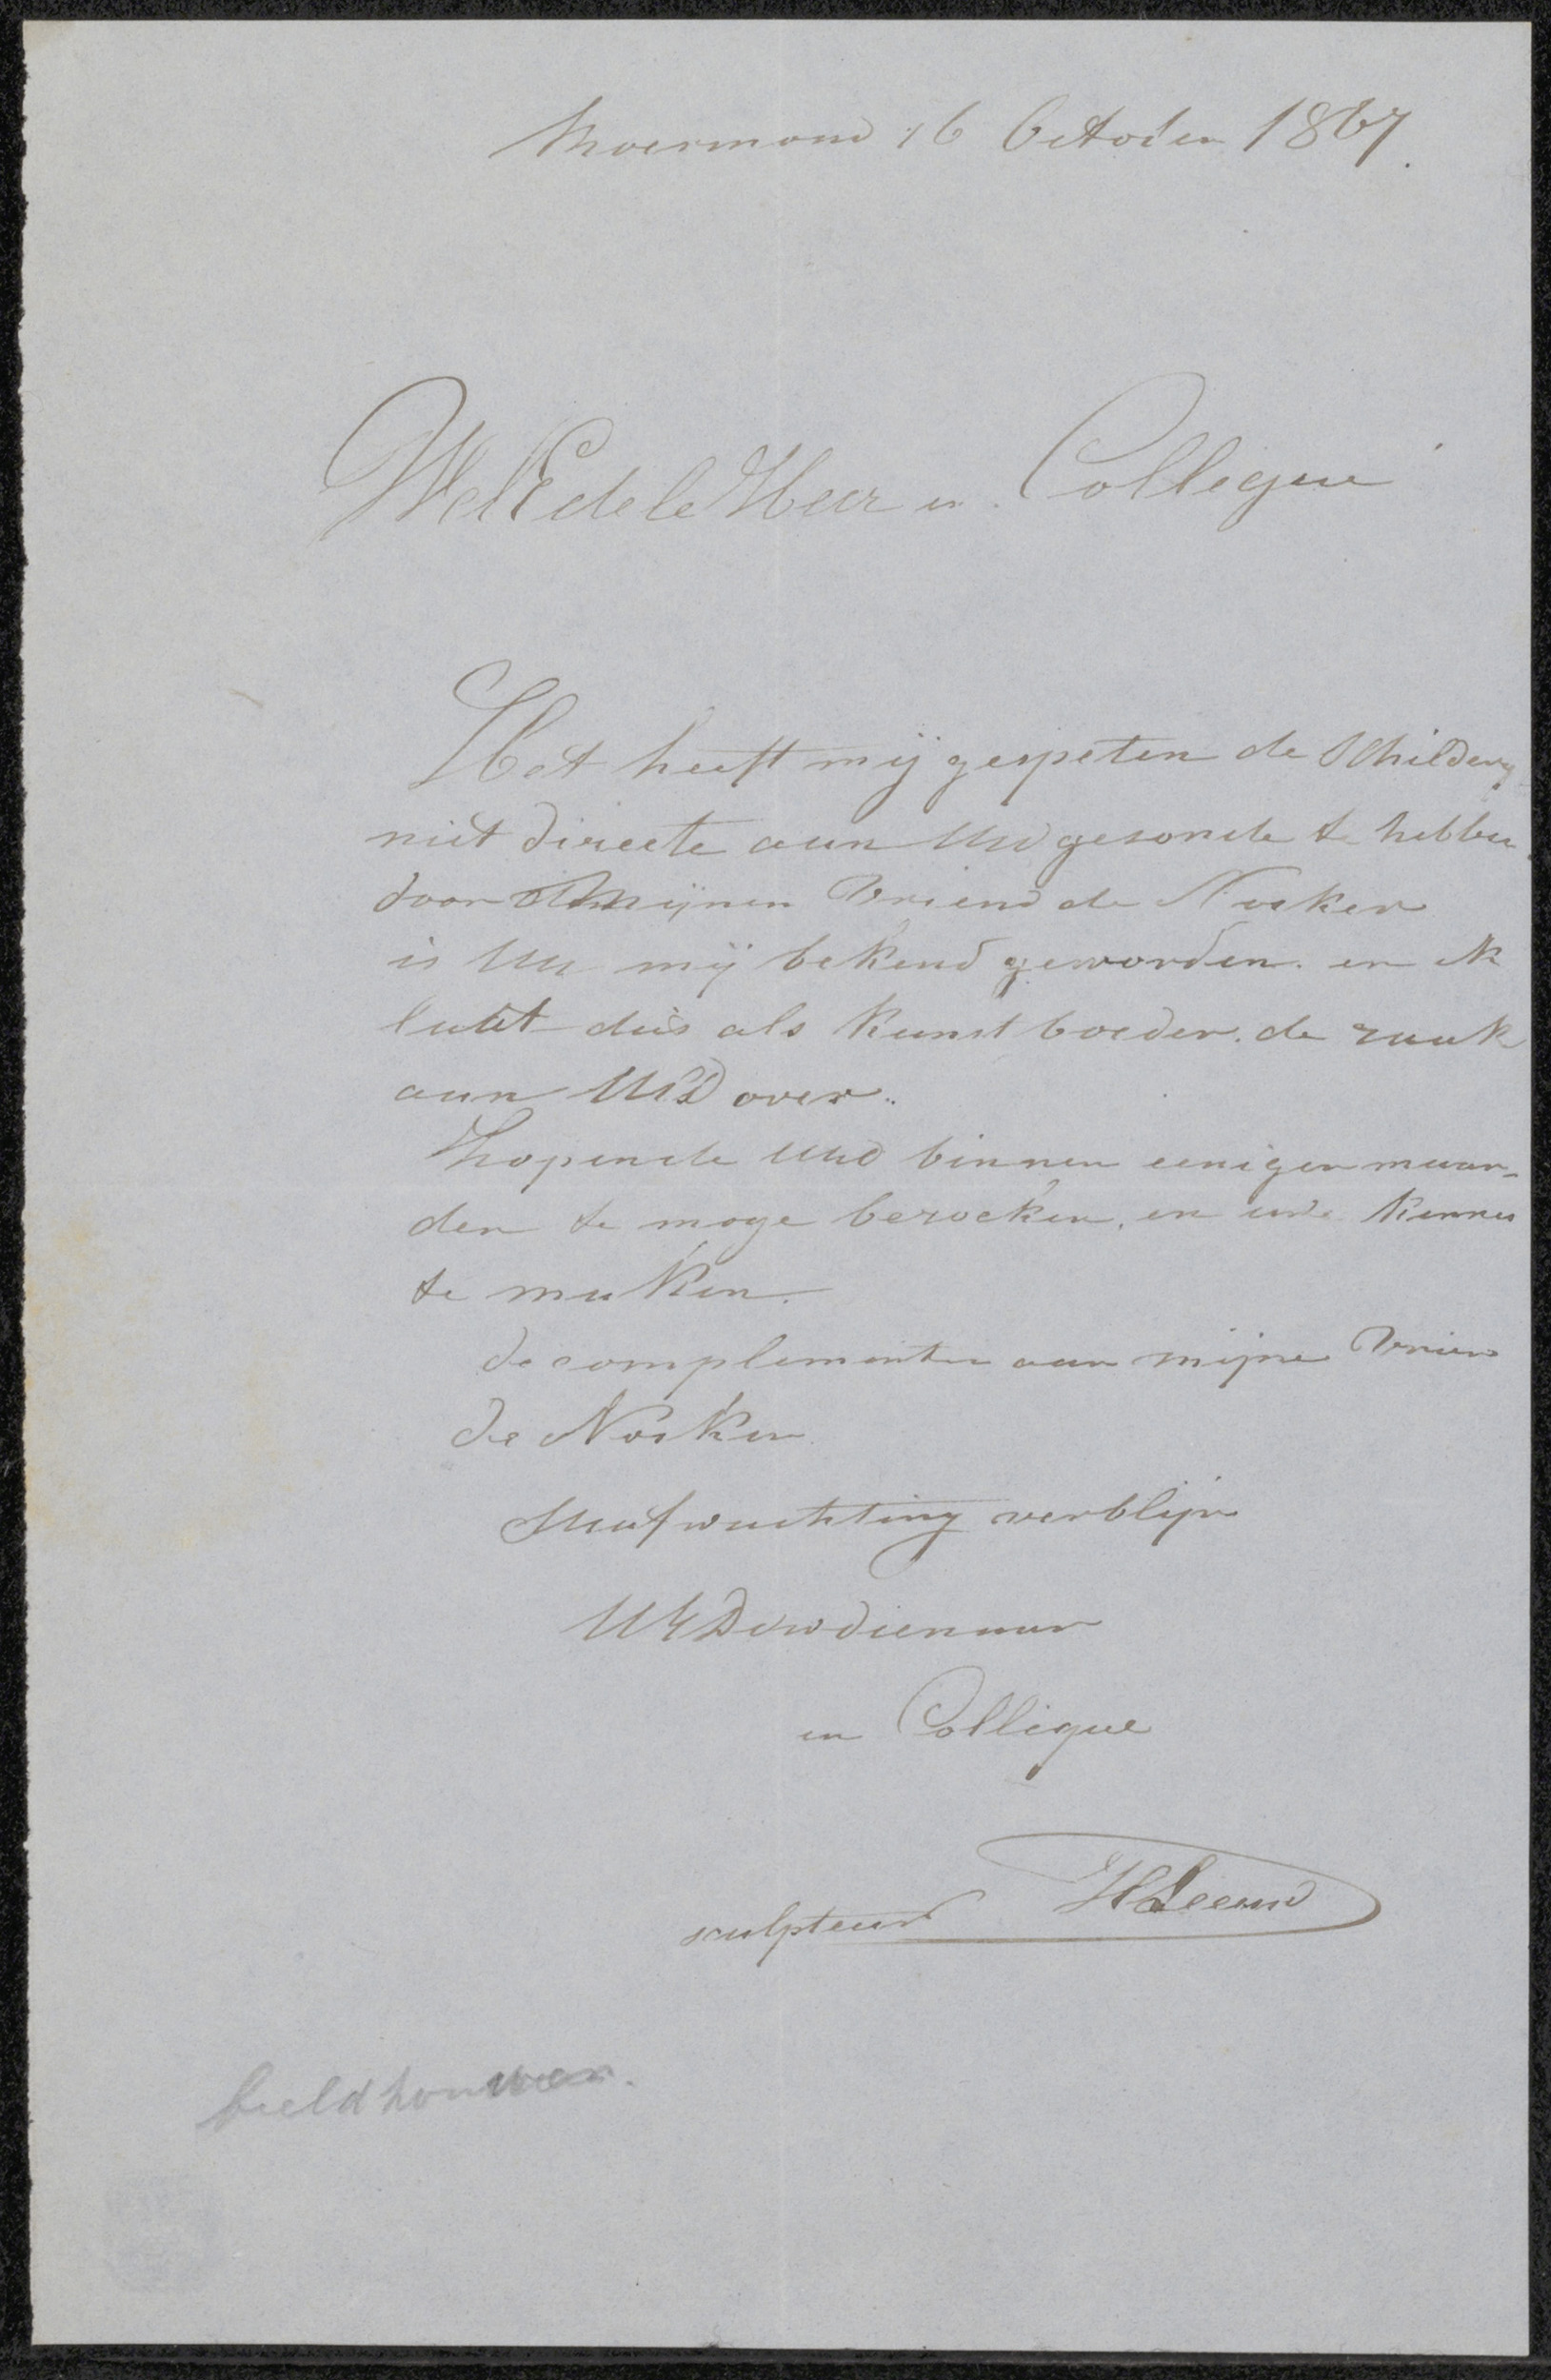 Roermond 16 October 1867.
WelEdele Heer en Collegue
Het heeft mij gespeten de schildery
niet directe aan Uw gesonde te hebben
door mijnen Vriend de Nosker
is Uw mij bekend geworden. en ik
laat dus als kunst boeder. de zaak
aan UED over.
Hopende Uwd binnen eenigen maan-
den te moge bezoeken, en uwe kennis
te maken.
de complimenten aan mijne Vriend
de Nosker
Afwachting verblijve
UEDw dienaar
en Collegue
sculpteur HLeeuw
beeldhouwer.